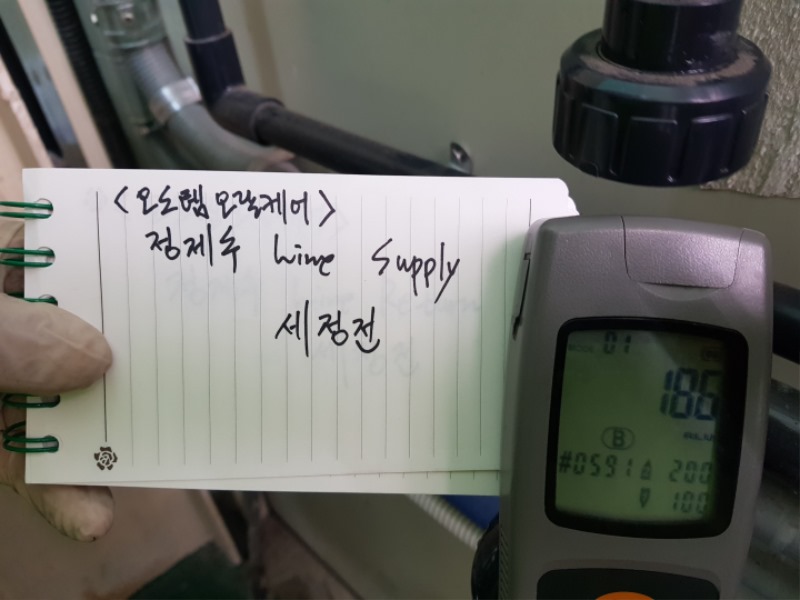 <오도텝 오랄케어>
정제수 Line Supply
세정전
01
186
RLU
B
#0591 200
100